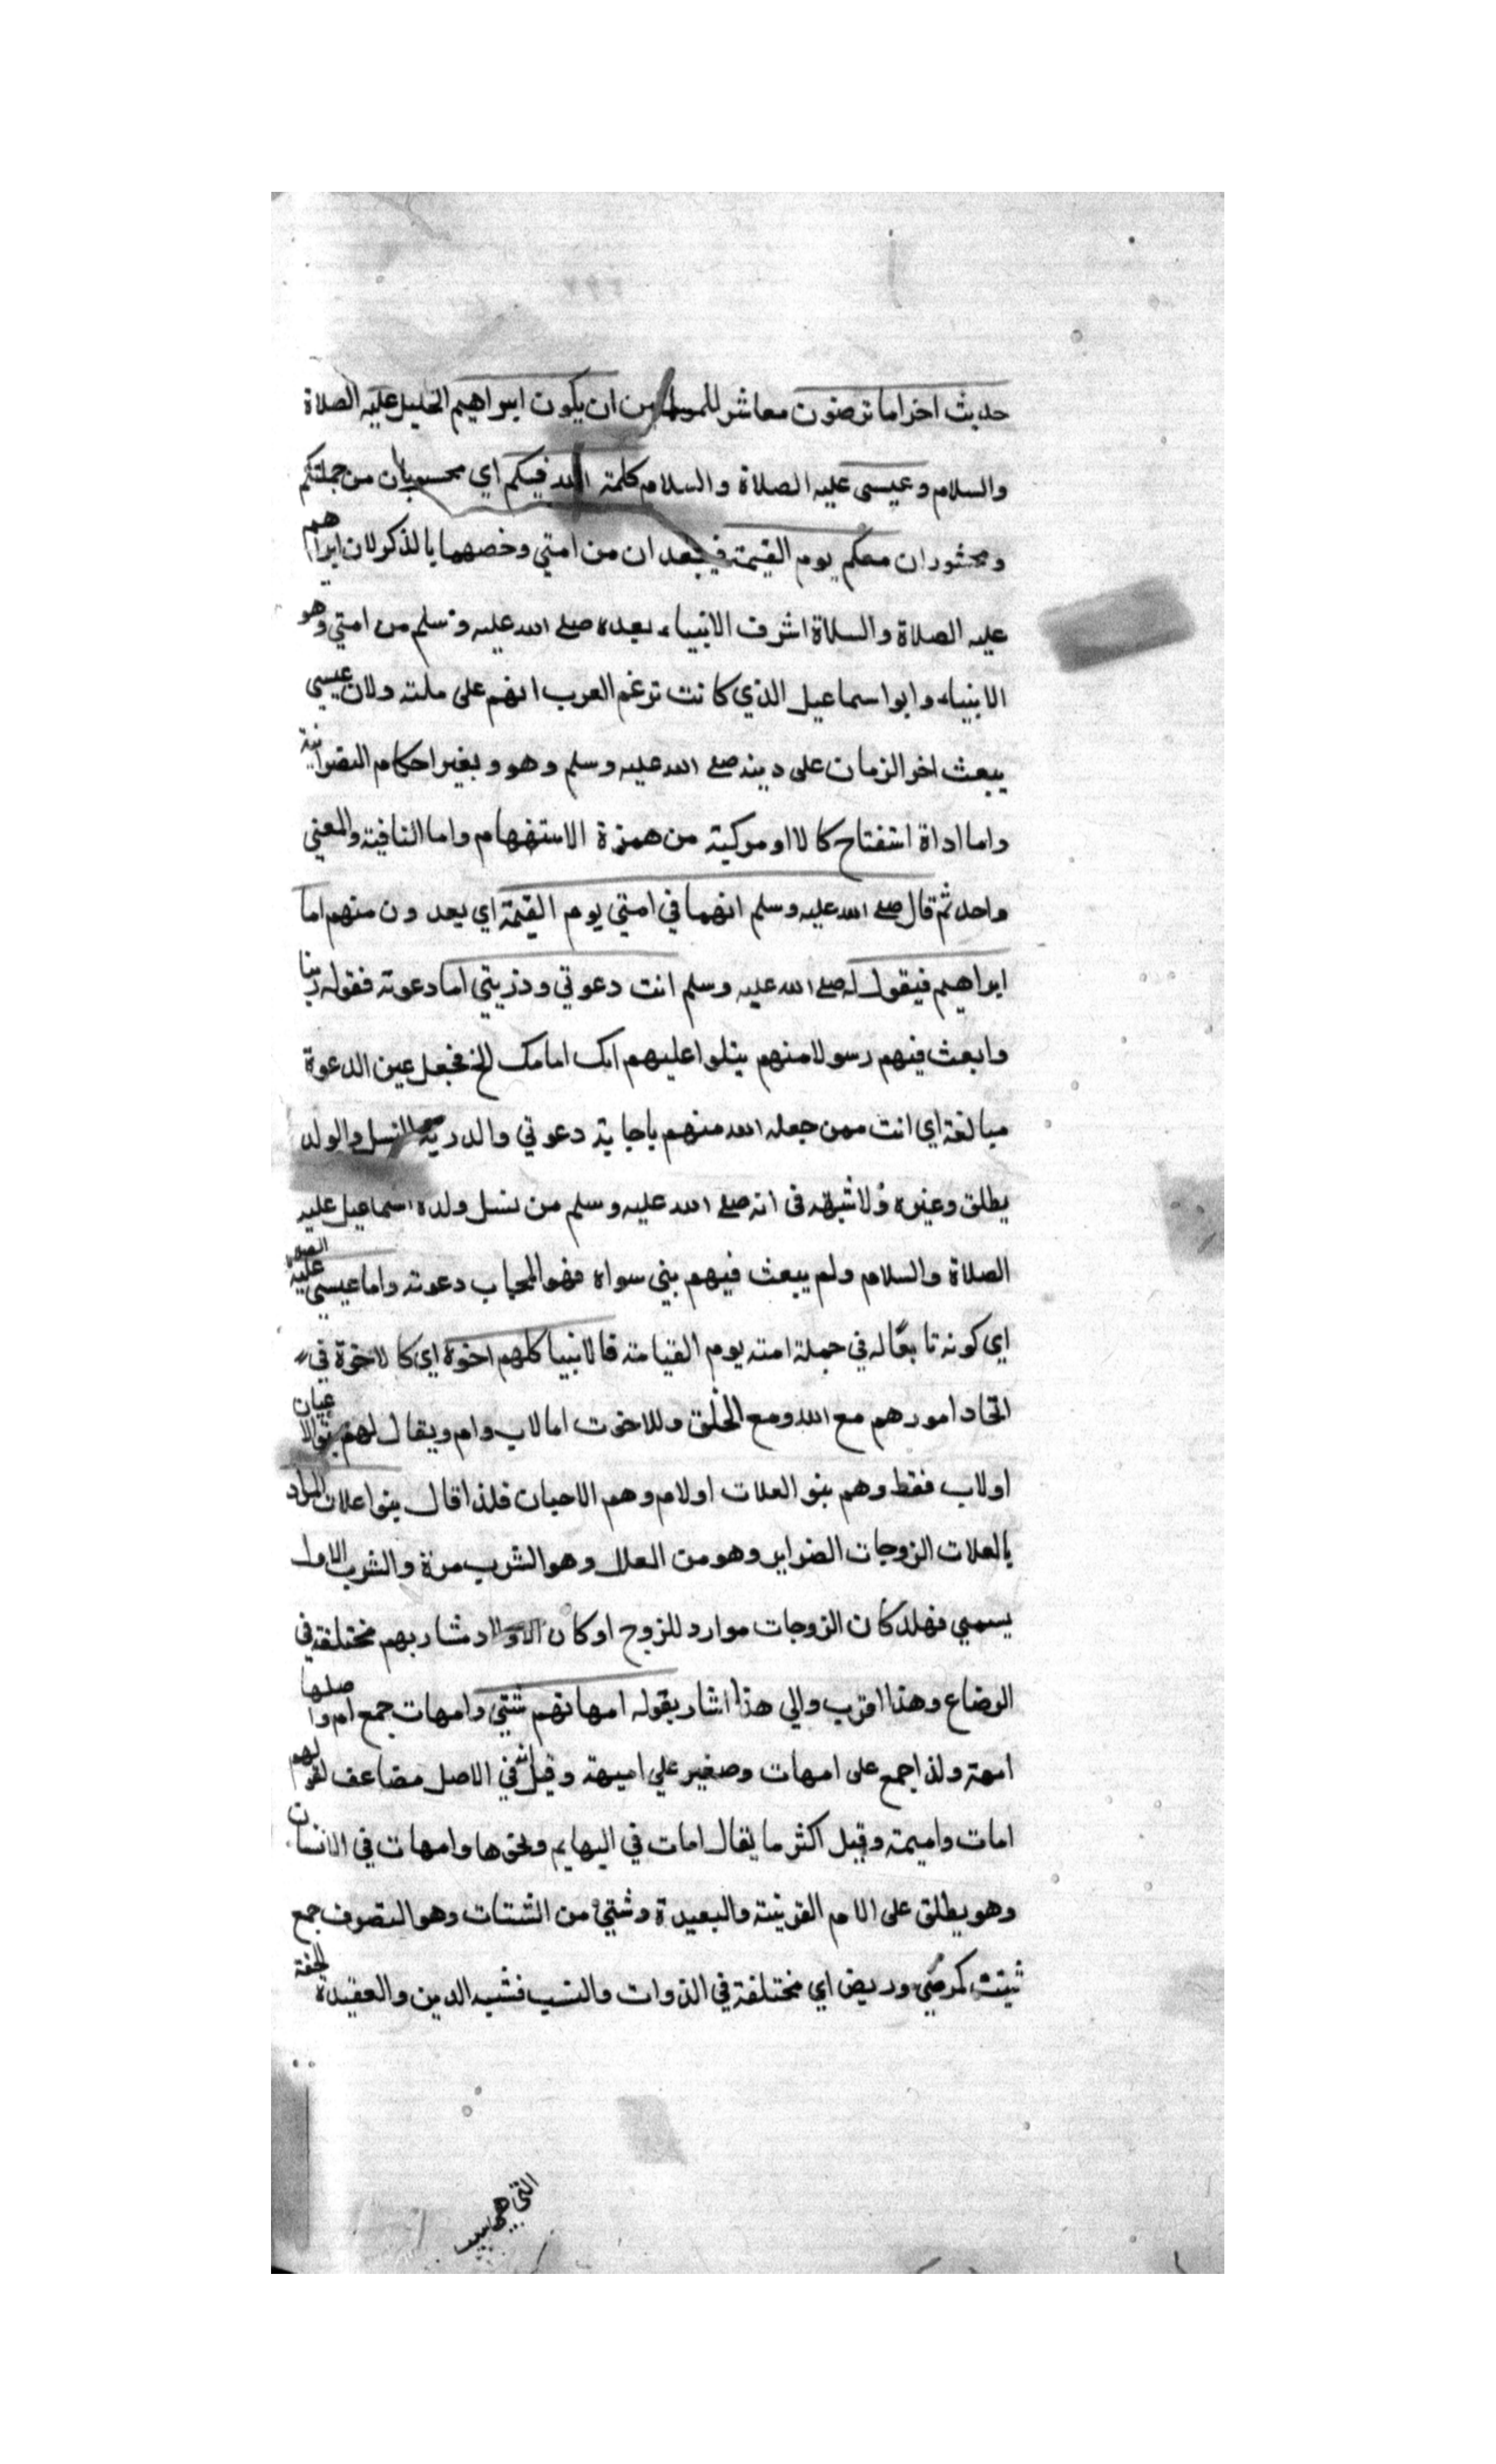 حديث اخر اما ترضون معاشر المسلمين ان يكون ابراهيم الخليل عليه الصلاة
والسلام وعيسى عليه الصلاة والسلام كلمة الله فيكم اي محسوبان من جملتكم
ومحشوران معكم يوم القيمة فيعدان من امتي وخصهما بالذكر لان ابراهيم
عليه الصلاة والسلاة اشرف الانبياء بعده صلى الله عليه وسلم من امتي وهو
الانبياء وابو اسماعيل الذي كانت تزعم العرب انهم على ملته ولان عيسى
يبعث اخر الزمان على دينه صلى الله عليه وسلم وهو ويغير احكام النصرانية
واما اداة استفتاح كالا او مركبة من همزة الاستفهام واما النافية والمعني
واحد ثم قال صلى الله عليه وسلم انهما في امتي يوم القيمة اي يعدون منهم اما
ابراهيم فيقول له صلى الله عليه وسلم انت دعوتي وذريتي اما دعوته فقوله ربنا
وابعث فيهم رسولا منهم يتلوا عليهم الخ فجعل عين الدعوة
مبالغة اي انت ممن جعله الله منهم باجابة دعوتي والدرية النسل والولد
يطلق وغيره ولا شبهة في انه صلى الله عليه وسلم من نسل ولده اسماعيل عليه
الصلاة والسلام ولم يبعث فيهم بني سواه فهو المجاب دعوته واما عيسى عليه الصلاة
اي كونه تابعا له في جملة امته يوم القيامة فالانبيا كلهم اخوة اي كالاخوة في
اتحاد امورهم مع الله ومع الخلق وللاخوت اما لاب وام ويقال لهم بنو الاعيان
اولاب فقط وهم بنو العلات اولام وهم الاحيان فلذا قال بنوا علات المراد
بالعلات الزوجات الضراير وهو من العلل وهو الشرب مرة والشرب الاول
يسمي نهلا كان الزوجات موارد للزوج او كان الاولاد مشاربهم مختلفة في
الرضاع وهذا اقرب والي هذا اشار بقوله امهاتهم شتي وامهات جمع ام واصلها
امهة ولذا جمع على امهات وصغير علي اميهة وقيل انه في الاصل مضاعف لقولهم
امات واميمة وقيل اكثر ما يقال امات في البهايم ونحوها وامهات في الانسان
وهو يطلق على الام القريبة والبعيدة وشتي من الشتات وهو التصرف جمع
شتيت كمرضي ومريض اي مختلفة في الذوات والنسب فشبه الدين والعقيدة الحقة
التي هي